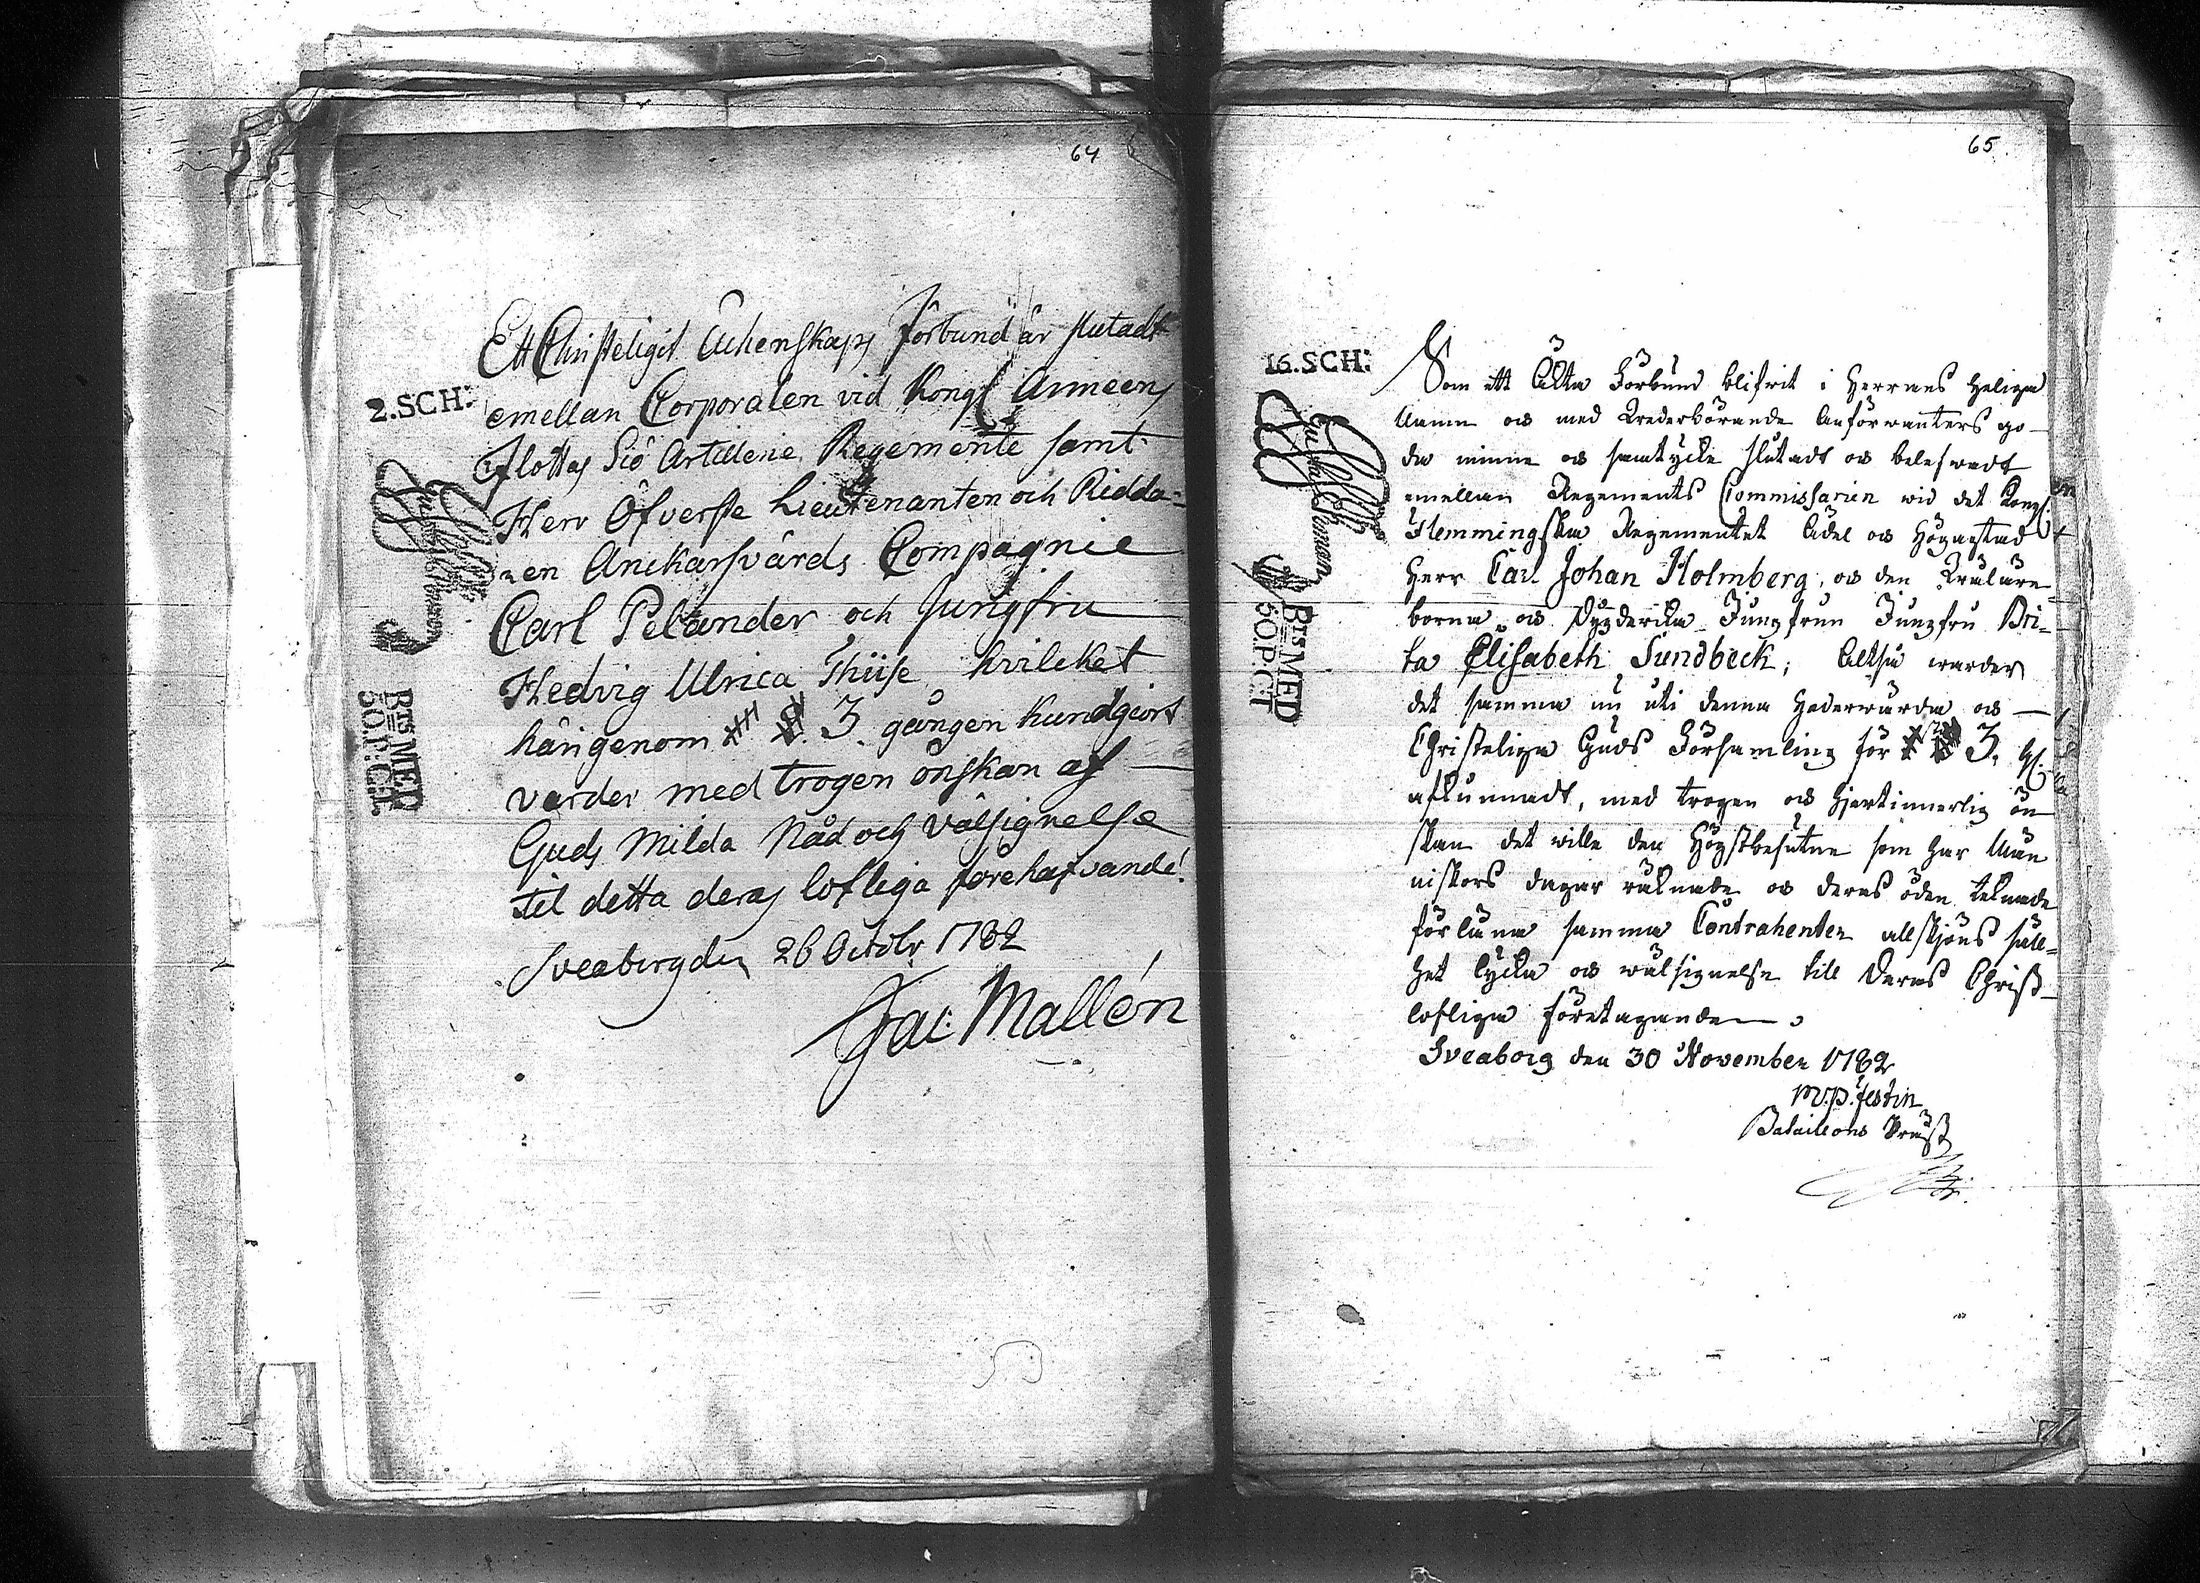 64
2.SCH:
Ett Christeligit Ächenskaps förbund är slutadt
emellan Corporalen vid Kongl Armeens
Flottas Siö Artillerie Regemente samt
Herr Öfverste Lieutenanten och Ridda-
ren Anckarsvärds Compagnie
Carl Pelander och Jungfru
Hedvig Ulrica Thiise hvilcket
härigenom 3. gången kundgiort
varder med trogen önskan af
Guds milda Nåd och välsignelse
til detta deras lofliga förehafvande!
Sveaborg den 26 Octobr 1782
Jac: Mallén
BTS MED
50.P:CT.
65
16.SCH:
Som ett Ächta Förbund blifvit i Herrans Heliga
Namn och med wederbörande Anförwanters go-
da minne och samtycke slutadt och belefwadt
emellan Regements Commissarien wid det Kongl.
Flemmingska Regementet Ädel och Högachtad
Herr Carl Johan Holmberg, och den Wälähre-
borna och Dygderika Jungfrun Jungfru Bri-
ta Elisabeth Sundbeck; Altså warder
det samma nu uti denna Hederwärda och
Christeliga Guds Församling för 3. g.
afkunnadt, med trogen och hjertinnerlig ön-
skan det wille den Högstbesutne som har Män
niskors dagar räknade och deras öden teknade
förläna samma Contrahenter allskjöns säll-
het lycka och wälsignelse till Deras Christ-
lofliga företagande.
Sveaborg den 30 November 1782
M.P. Festin
Bataillons Præst
BTS MED
50.P.CT